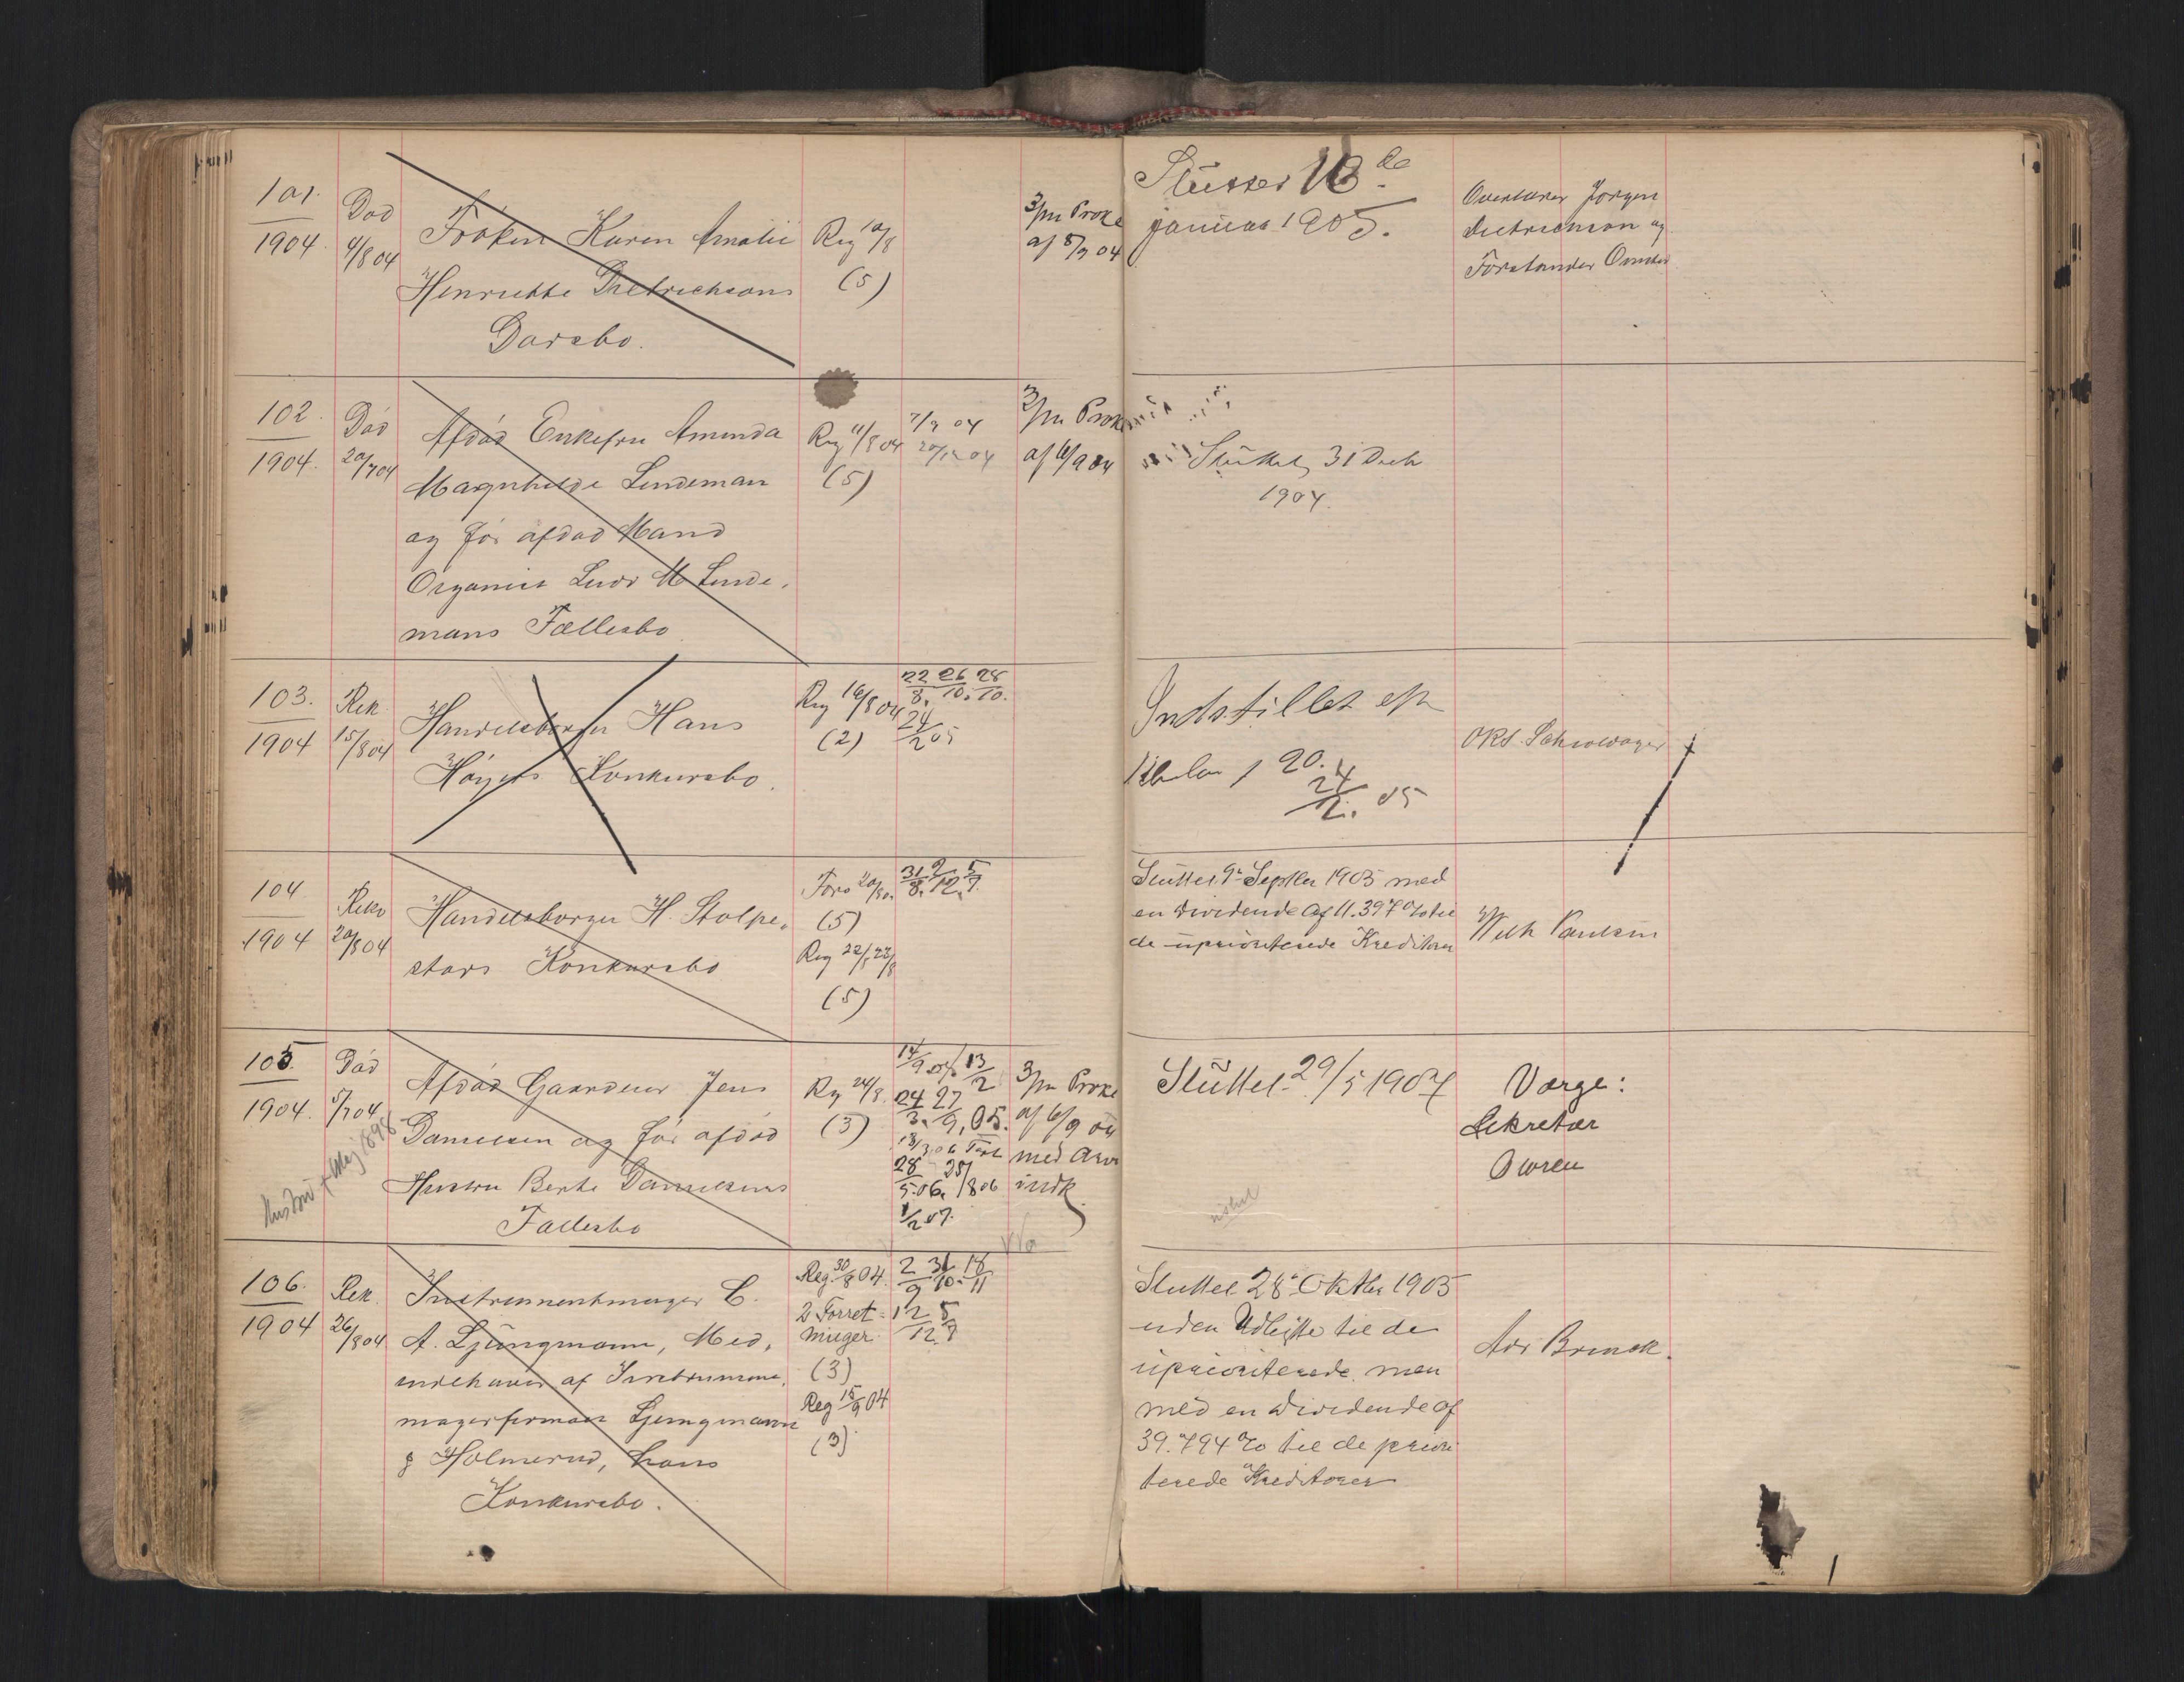 101.
1904.
Død
4/8 04
Frøken Karen Amalie
Henriette Dietrichsons
Dødsbo.
Reg 10/8
(5)
3/m Prokl
af 8/9 04
Sluttet 18de
januar 1905.
Overlærer Jørgen
Dietrichson og
Forstander
102.
1904.
Død
20/7 04
Afdød Enkefru Amunda
Magnhilde Lindeman
og før afdød Mand
Organist Ludv M Linde-
mans Fællesbo
Reg 11/8 04
(5)
7/9 04
20/12 04
3/m Prokl
af 6/9 04
Sluttet 31 Decb
1904.
103.
1904
Rek
15/8 04
Handelsborger Hans
Høyers Konkursbo.
Reg 16/8 04
(2)
22/8. 26/10. 28/10.
24/2 05
Indstillet eft
24/2. 05
104
1904
Rekv
20/8 04
Handelsborger H. Stolpe-
stads Konkursbo
(5)
Reg 22/8 23/8
(5)
31/8. 9/12. 5/9.
Sluttet 9 Septbr 1905 med
en Dividende af 11.397 % til
de uprioriterede Kreditorer
Wilh Paulsen
105.
1904.
Død
5/7 04
Afdød Gaardeier Jens
Danielsen og før afdød
Hustru Berte Danielsens
Fællesbo
Reg 24/8
(3)
14/9 04 13/2
24/3. 27/9, 05.
28/5.06. 25/8 06
1/2 07.
3/m Prokl
af 6/9 04
med Arv
indk
Sluttet 29/5 1907
Værge:
Sekretær
106.
1904
Rek
26/8 04
Instrumentmager C.
A. Ljungmann, Med-
indehaver af Instrument-
magerfirmaet Ljungmann
& Holmerud, hans
Konkursbo.
Reg. 30/8 04.
2 Forret-
ninger
(3)
Reg 15/9 04
(3)
2/9 31/10. 18/11
12/12 5/9
Sluttet 28 Oktbr 1905
uden Udbytte til de
uprioriterede men
med en Dividende af
39.794 % til de priori
terede Kreditorer